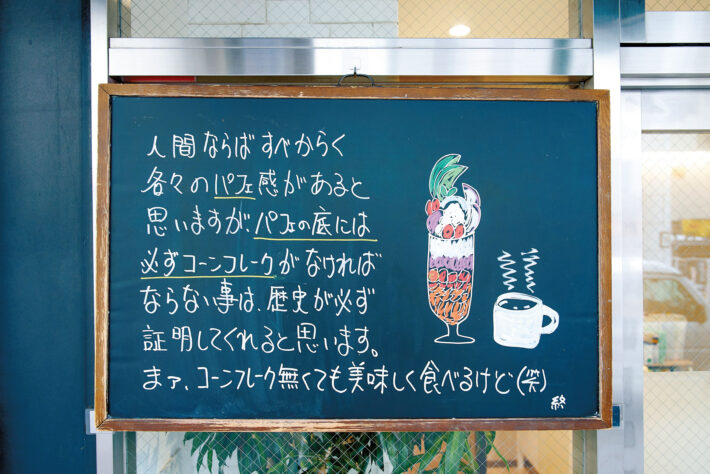 人間ならばすべからく
各々のパフェ感があると
思いますが、パフェの底には
必ずコーンフレークがなければ
ならない事は、歴史が必ず
証明してくれると思います。
まァ、コーンフレーク無くても美味しく食べるけど(笑)
終